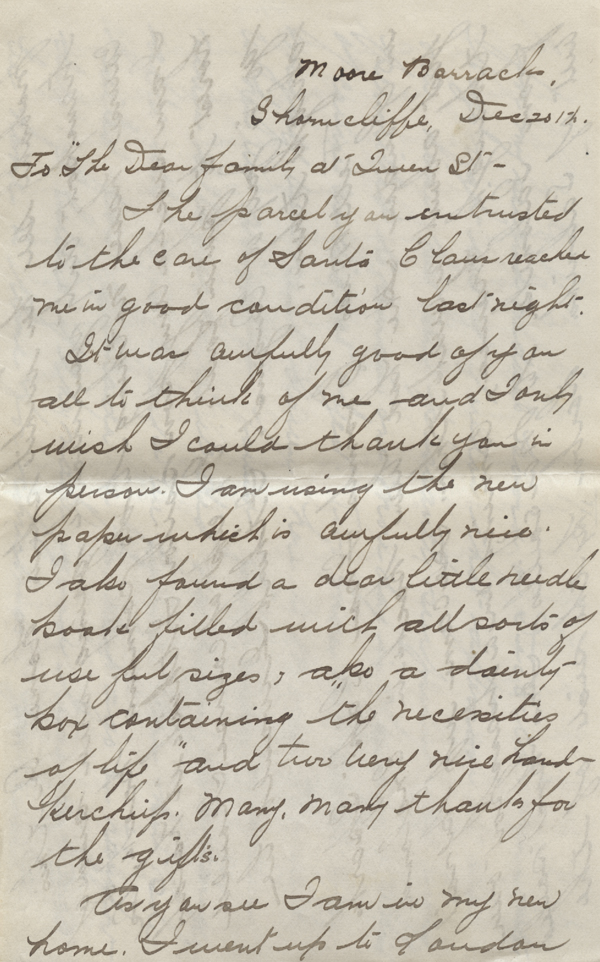 Moore Barracks,
Shorncliffe, Dec 20 17.
To "The Dear family at Queen St -
The parcel you entrusted
to the care of Santa Claus reached
me in good condition last night.
It was awfully good of you
all to think of me and I only
wish I could thank you in
person. I am using the new
paper which is awfully nice.
I also found a dear little needle
book filled with all sorts of
useful sizes, also a dainty
box containing "the necessities
of life" and two very nice hand-
kerchiefs. Many, many thanks for
the gifts.
As you see I am in my new
home. I went up to London